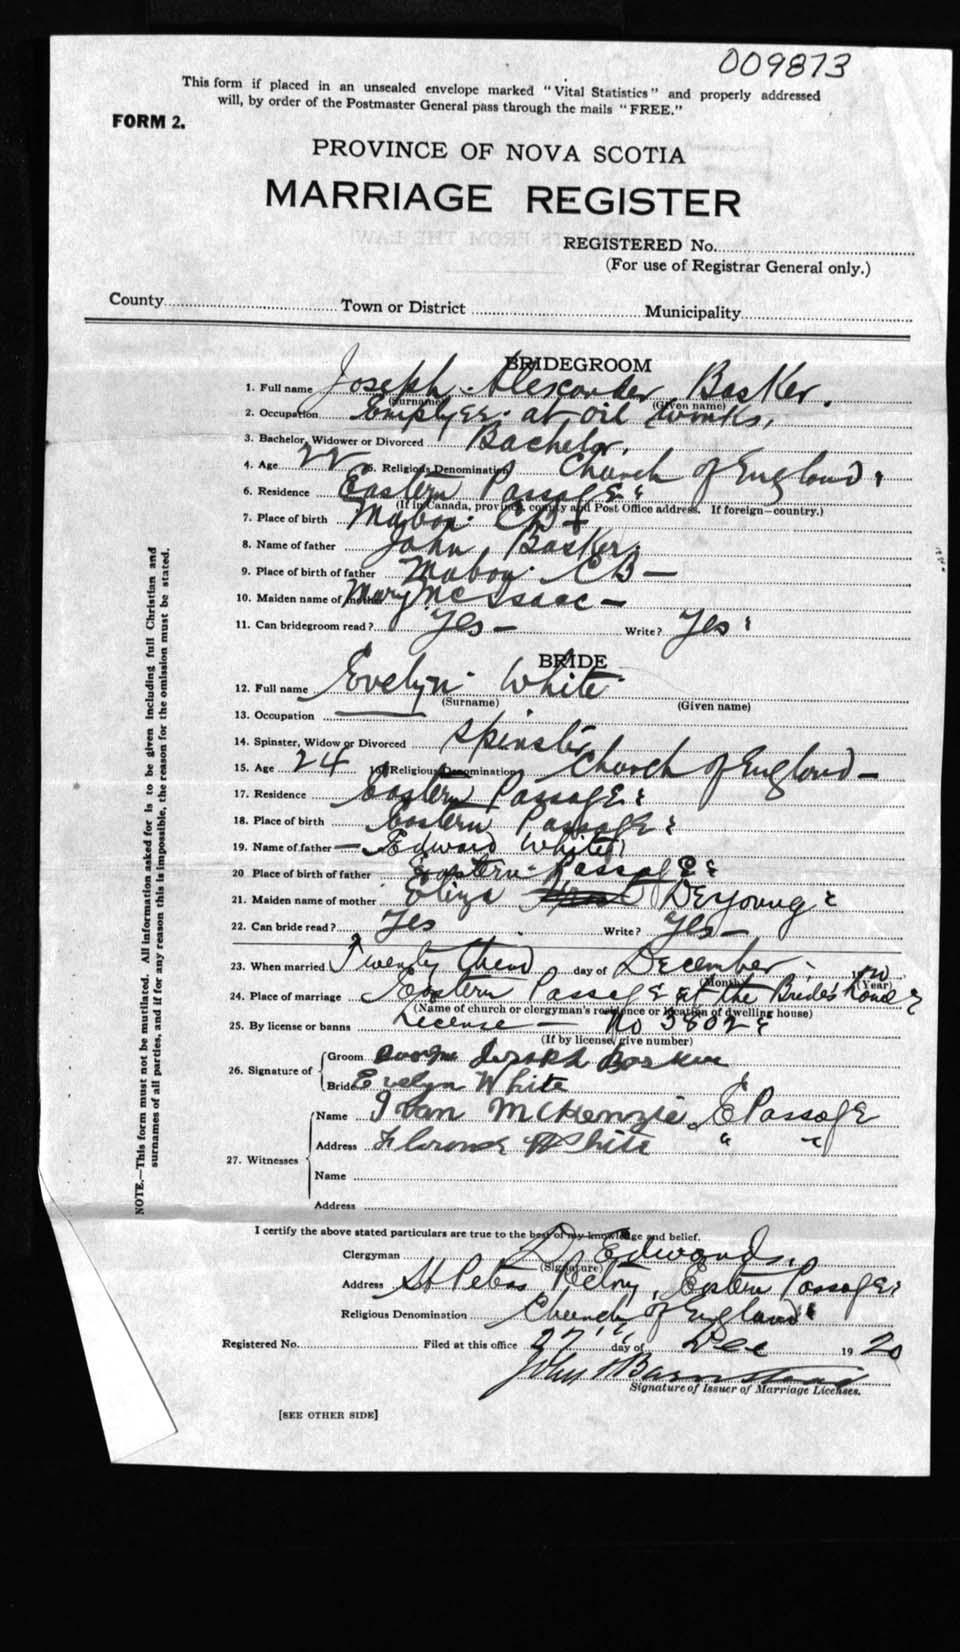 009873
This form if placed in an unsealed envelope marked "Vital Statistics" and properly addressed
will, by order of the Postmaster General pass through the mails "FREE."
FORM 2.
PROVINCE OF NOVA SCOTIA
MARRIAGE REGISTER
REGISTERED No.
(For use of Registrar General only.)
County Town or District Municipality
BRIDEGROOM
1. Full name Joseph Alexander Basker.
(Surname) (Given name)
2. Occupation at oil works,
3. Bachelor, Widower or Divorced Bachelor,
4. Age 22 5. Religious Denomination Church of England
6. Residence Eastern Passage
(If in Canada, province, county and Post Office address. If foreign—country.)
7. Place of birth Mabou CB
8. Name of father John Basker
9. Place of birth of father Mabou CB —
10. Maiden name of mother Mary McIsaac —
11. Can bridegroom read? Yes — Write? Yes
BRIDE
12. Full name Evelyn White
(Surname) (Given name)
13. Occupation
14. Spinster, Widow or Divorced Spinster
15. Age 24 16. Religious Denomination Church of England —
17. Residence Eastern Passage
18. Place of birth Eastern Passage
19. Name of father — Edward White
20 Place of birth of father Eastern Passage
21. Maiden name of mother Eliza DeYoung
22. Can bride read? Yes Write? Yes —
23. When married Twenty third day of December 1920
(Month) (Year)
24. Place of marriage Eastern Passage at the Bride's home
(Name of church or clergyman's residence or location of dwelling house)
25. By license or banns License — No 3802
(If by license, give number)
26. Signature of Groom Joseph Basker
Bride Evelyn White
27. Witnesses
Name Ivan McKenzie E Passage
Address Florence White " "
Name
Address
I certify the above stated particulars are true to the best of my knowledge and belief.
Clergyman D. Edwards.
(Signature)
Address St Peters Rectory, Eastern Passage
Religious Denomination Church of England
Registered No. Filed at this office 27 day of Dec 1920
John Barnstead
Signature of Issuer of Marriage Licenses.
[SEE OTHER SIDE]
NOTE.—This form must not be mutilated. All information asked for is to be given including full Christian and
surnames of all parties, and if for any reason this is impossible, the reason for the omission must be stated.